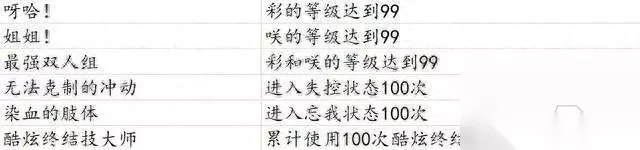 呀哈！ 彩的等级达到99
姐姐！ 咲的等级达到99
最强双人组 彩和咲的等级达到99
无法克制的冲动 进入失控状态100次
染血的肢体 进入忘我状态100次
酷炫终结技大师 累计使用100次酷炫终结